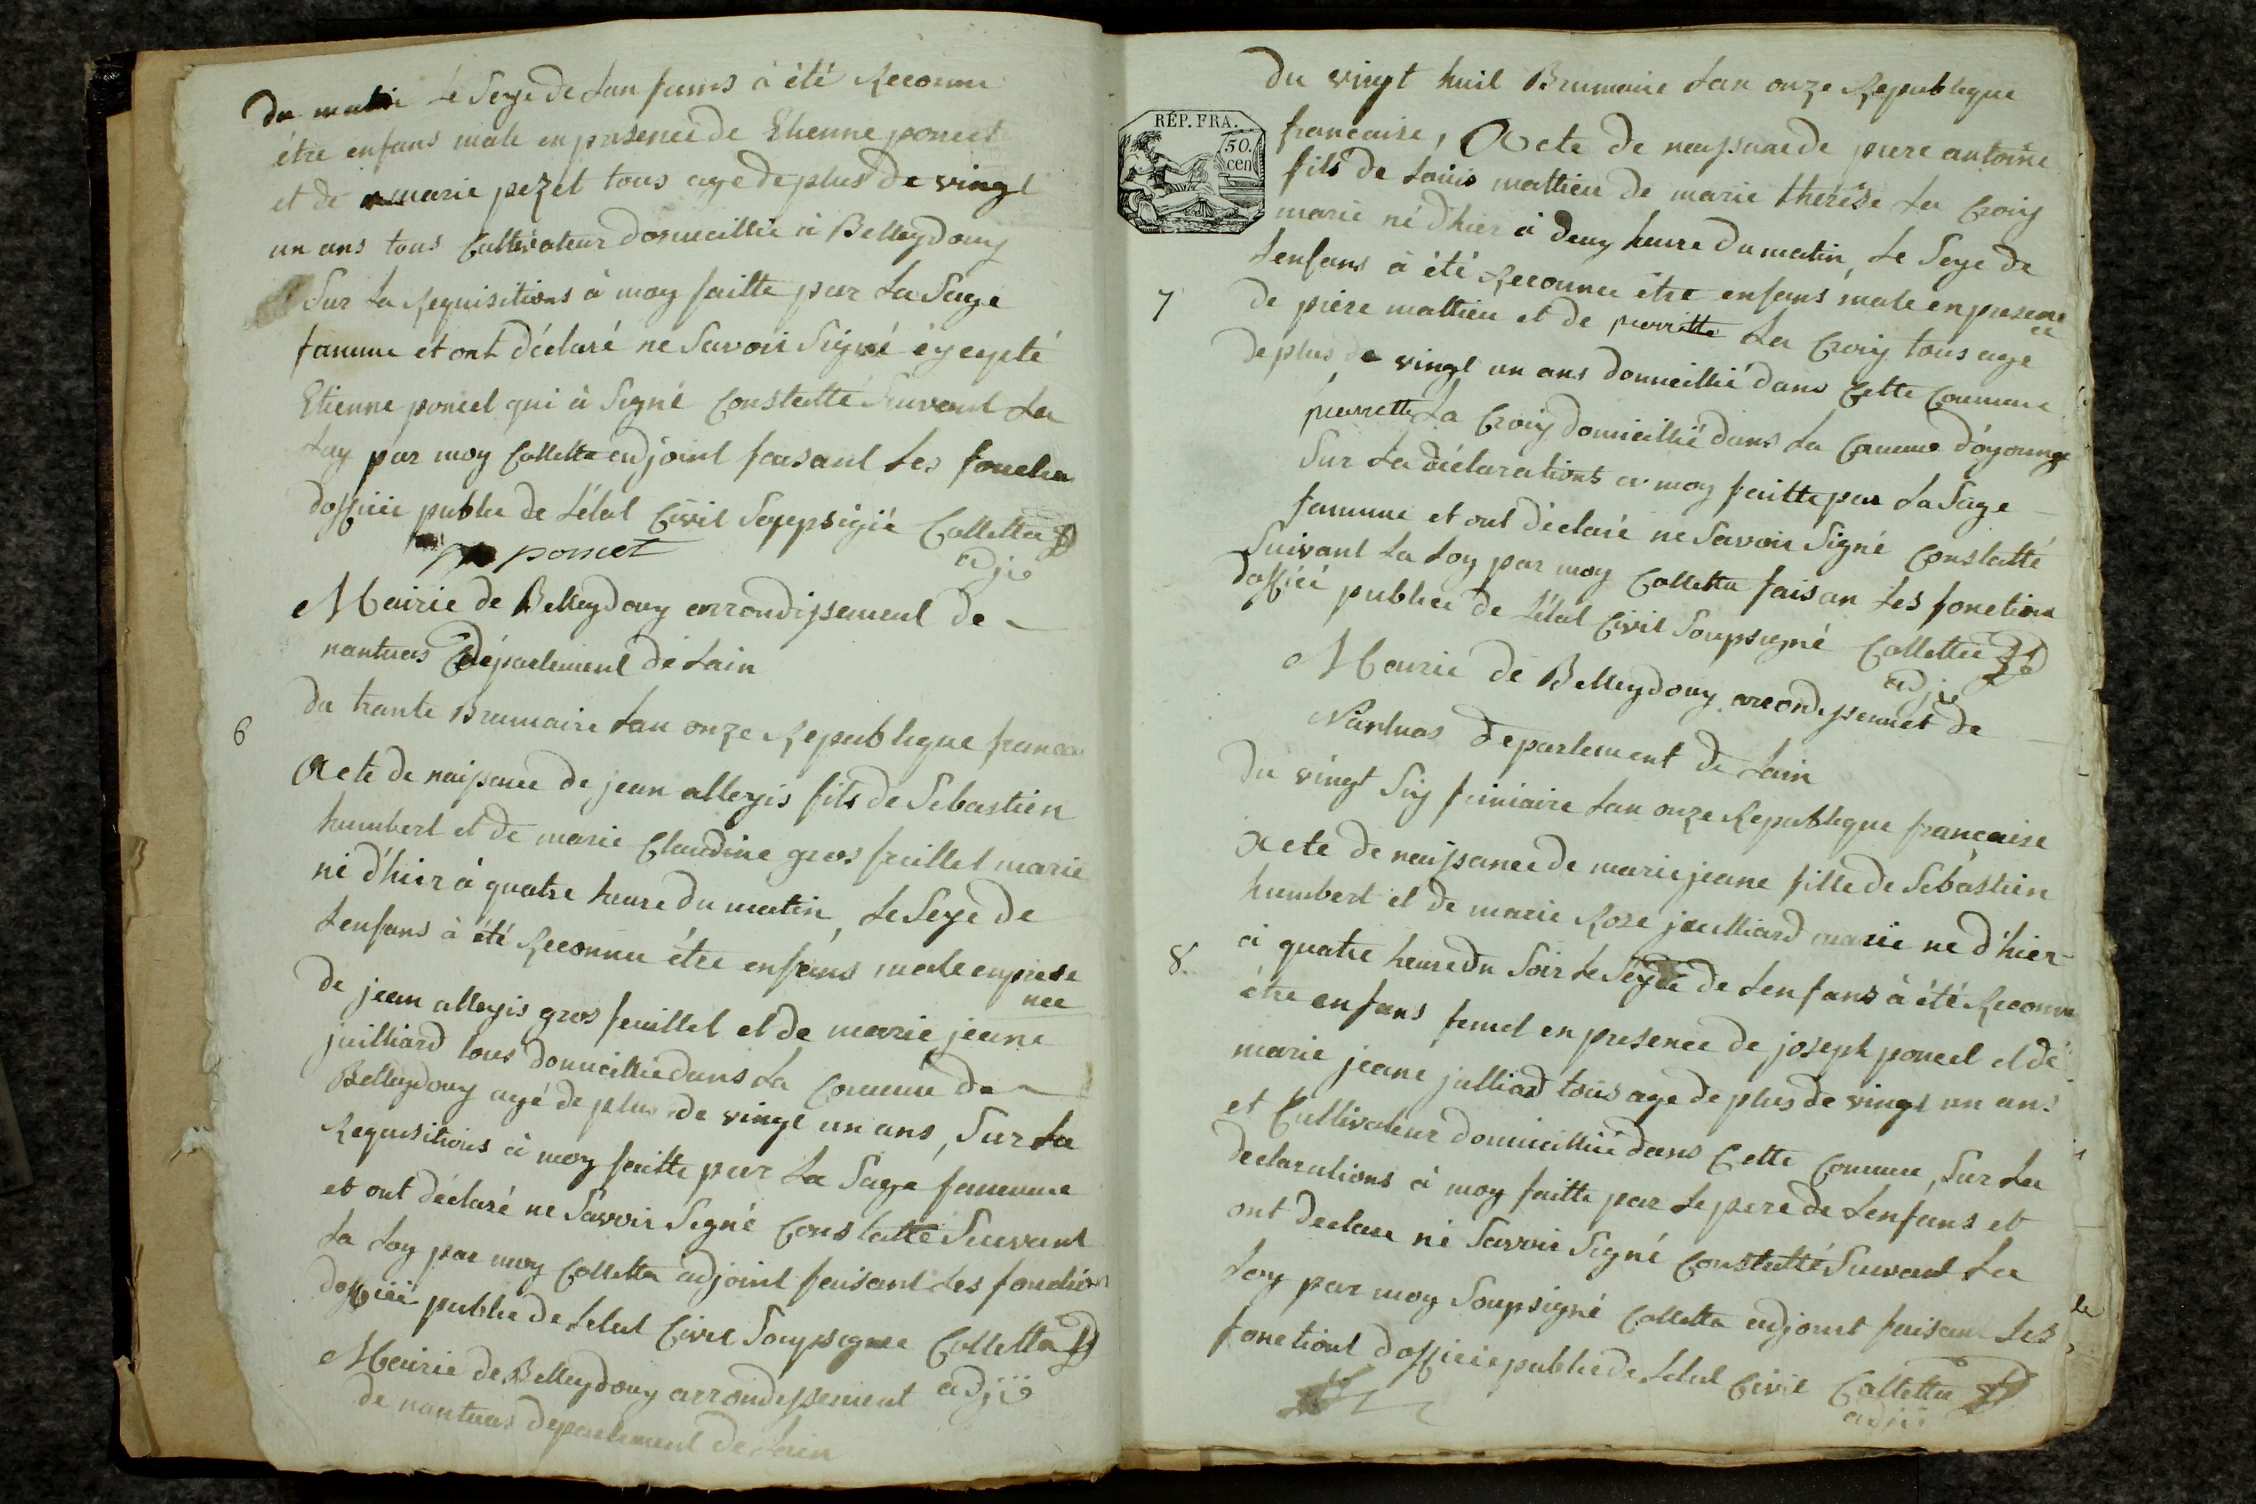 du matin Le Sexe de Lan fans à été Reconnu
être enfans male en presence de Etienne poncet
et de marie pezet tous age de plus de vingt
un ans tous Cultivateur domicillié à Belleydoux
Sur La Requisitions à moy faitte par La Sage
famme et ont déclaré ne Savoir Signé éxcepté
Etienne poncet qui à Signé Constatté Suivant La
Loy par moy Colletta adjoint faisant Les fonction
dofficié public de Létat Civil Soupsigié Colletta
poncet adjt
Mairie de Belleydoux arrondissement de
nantuas département de Lain
6
du trante Brumaire Lan onze Republique franca
Acte de naissance de jean allexis fils de Sebastien
humbert et de marie Claudine gros feuillet marié
né d'hier à quatre heure du matin, Le Sexe de
Lenfans à été Reconnu être enfans male en prese
nce
de jean allexis gros feuillet et de marie jeane
juilliard tous domicillié dans La Comune de
Belleydoux agé de plus de vingt un ans, Sur La
Requisitions à moy faitte par La Sage famme
et ont déclaré ne Savoir Signé Constatté Suivant
La Loy par moy Colletta adjoint faisant Les fonction
dofficié public de Létat Civil Soupsigné Colletta
adjt
Mairie de Belleydoux arrondissement
de nantuas departement de Lain
du vingt huit Brumaire Lan onze Republique
RÉP. FRA.
50.
cen
francaise, Acte de naissance de piere antoine
fils de Louis mattieu de marie thérése La Croix
marié né d'hier à deux heure du matin, Le Sexe de
Lenfans à été Reconnu être enfans male en presen
ce
7
de piere mattieu et de pierrette La Croix tous age
de plus de vingt un ans domicillié dans Cette Commune
pierrette La Croix domicillié dans La Comune d'oyonnax
Sur La déclarations a moy faitte par La Sage
famme et ont déclaré ne Savoir Signé Constatté
Suivant La Loy par moy Colletta faisan Les fonction
dofficié public de Létat Civil Soupsigné Colletta
adjt
Mairie de Belleydoux arondissemet de
Nantuas departement de Lain
du vingt Six frimaire Lan onze Republique francaise
Acte de naissance de marie jeane fille de Sebastien
humbert et de marie Roze juilliard marié ne d'hier
8.
à quatre heure du Soir Le Sexe de Lenfans à été Reconnu
être enfans femel en presence de joseph poncet et de
marie jeane julliard tous age de plus de vingt un ans
et Cultivateur domicillié dans Cette Comune, Sur La
declarations à moy faitte par Le pere de Lenfans et
ont declaré né Savoir Signé Constatté Suivant La
Loy par moy Soupsigné Colletta adjoint faisant Les
fonctiont dofficié public de Létat Civil Colletta
adjt